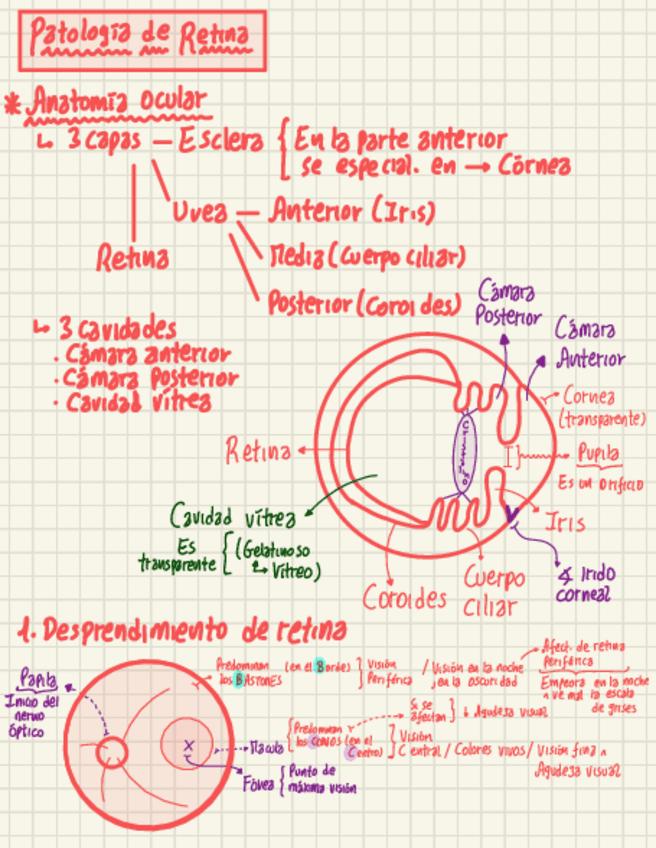 Patología de Retina
* Anatomía ocular
↳ 3 capas — Esclera { En la parte anterior
se especial. en → Córnea
Uvea — Anterior (Iris)
Retina
Media (Cuerpo ciliar)
Posterior (Coroides)
↳ 3 cavidades
· Cámara anterior
· Cámara Posterior
· Cavidad vítrea
Cámara
Posterior
Cámara
Anterior
Cornea
(transparente)
Retina
Pupila
Es un orificio
Cavidad vítrea
Es
transparente { (Gelatinoso
↳ Vítreo)
Iris
Coroides
Cuerpo
ciliar
∢ Irido
corneal
1. Desprendimiento de retina
Papila
Inicio del
nervo
óptico
Predominan (en el Borde)
los BASTONES
Visión
Periférica
/ Visión en la noche
, en la oscuridad
Afect. de retina
Periférica
Empeora en la noche
n ve mal la escala
de grises
Si se
afectan ] ↓ Agudeza visual
x
Macula
Predominan
los CONOS (en el
Centro)
Visión
Central / Colores vivos / Visión fina n
Agudeza visual
Fóvea { Punto de
máxima visión